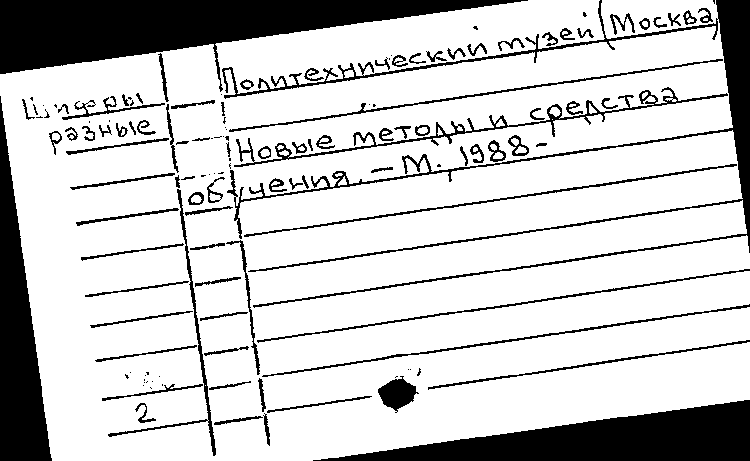 Политехнический музей (Москва)
Шифры
разные
Новые методы и средства
обучения. – М., 1988 -
2